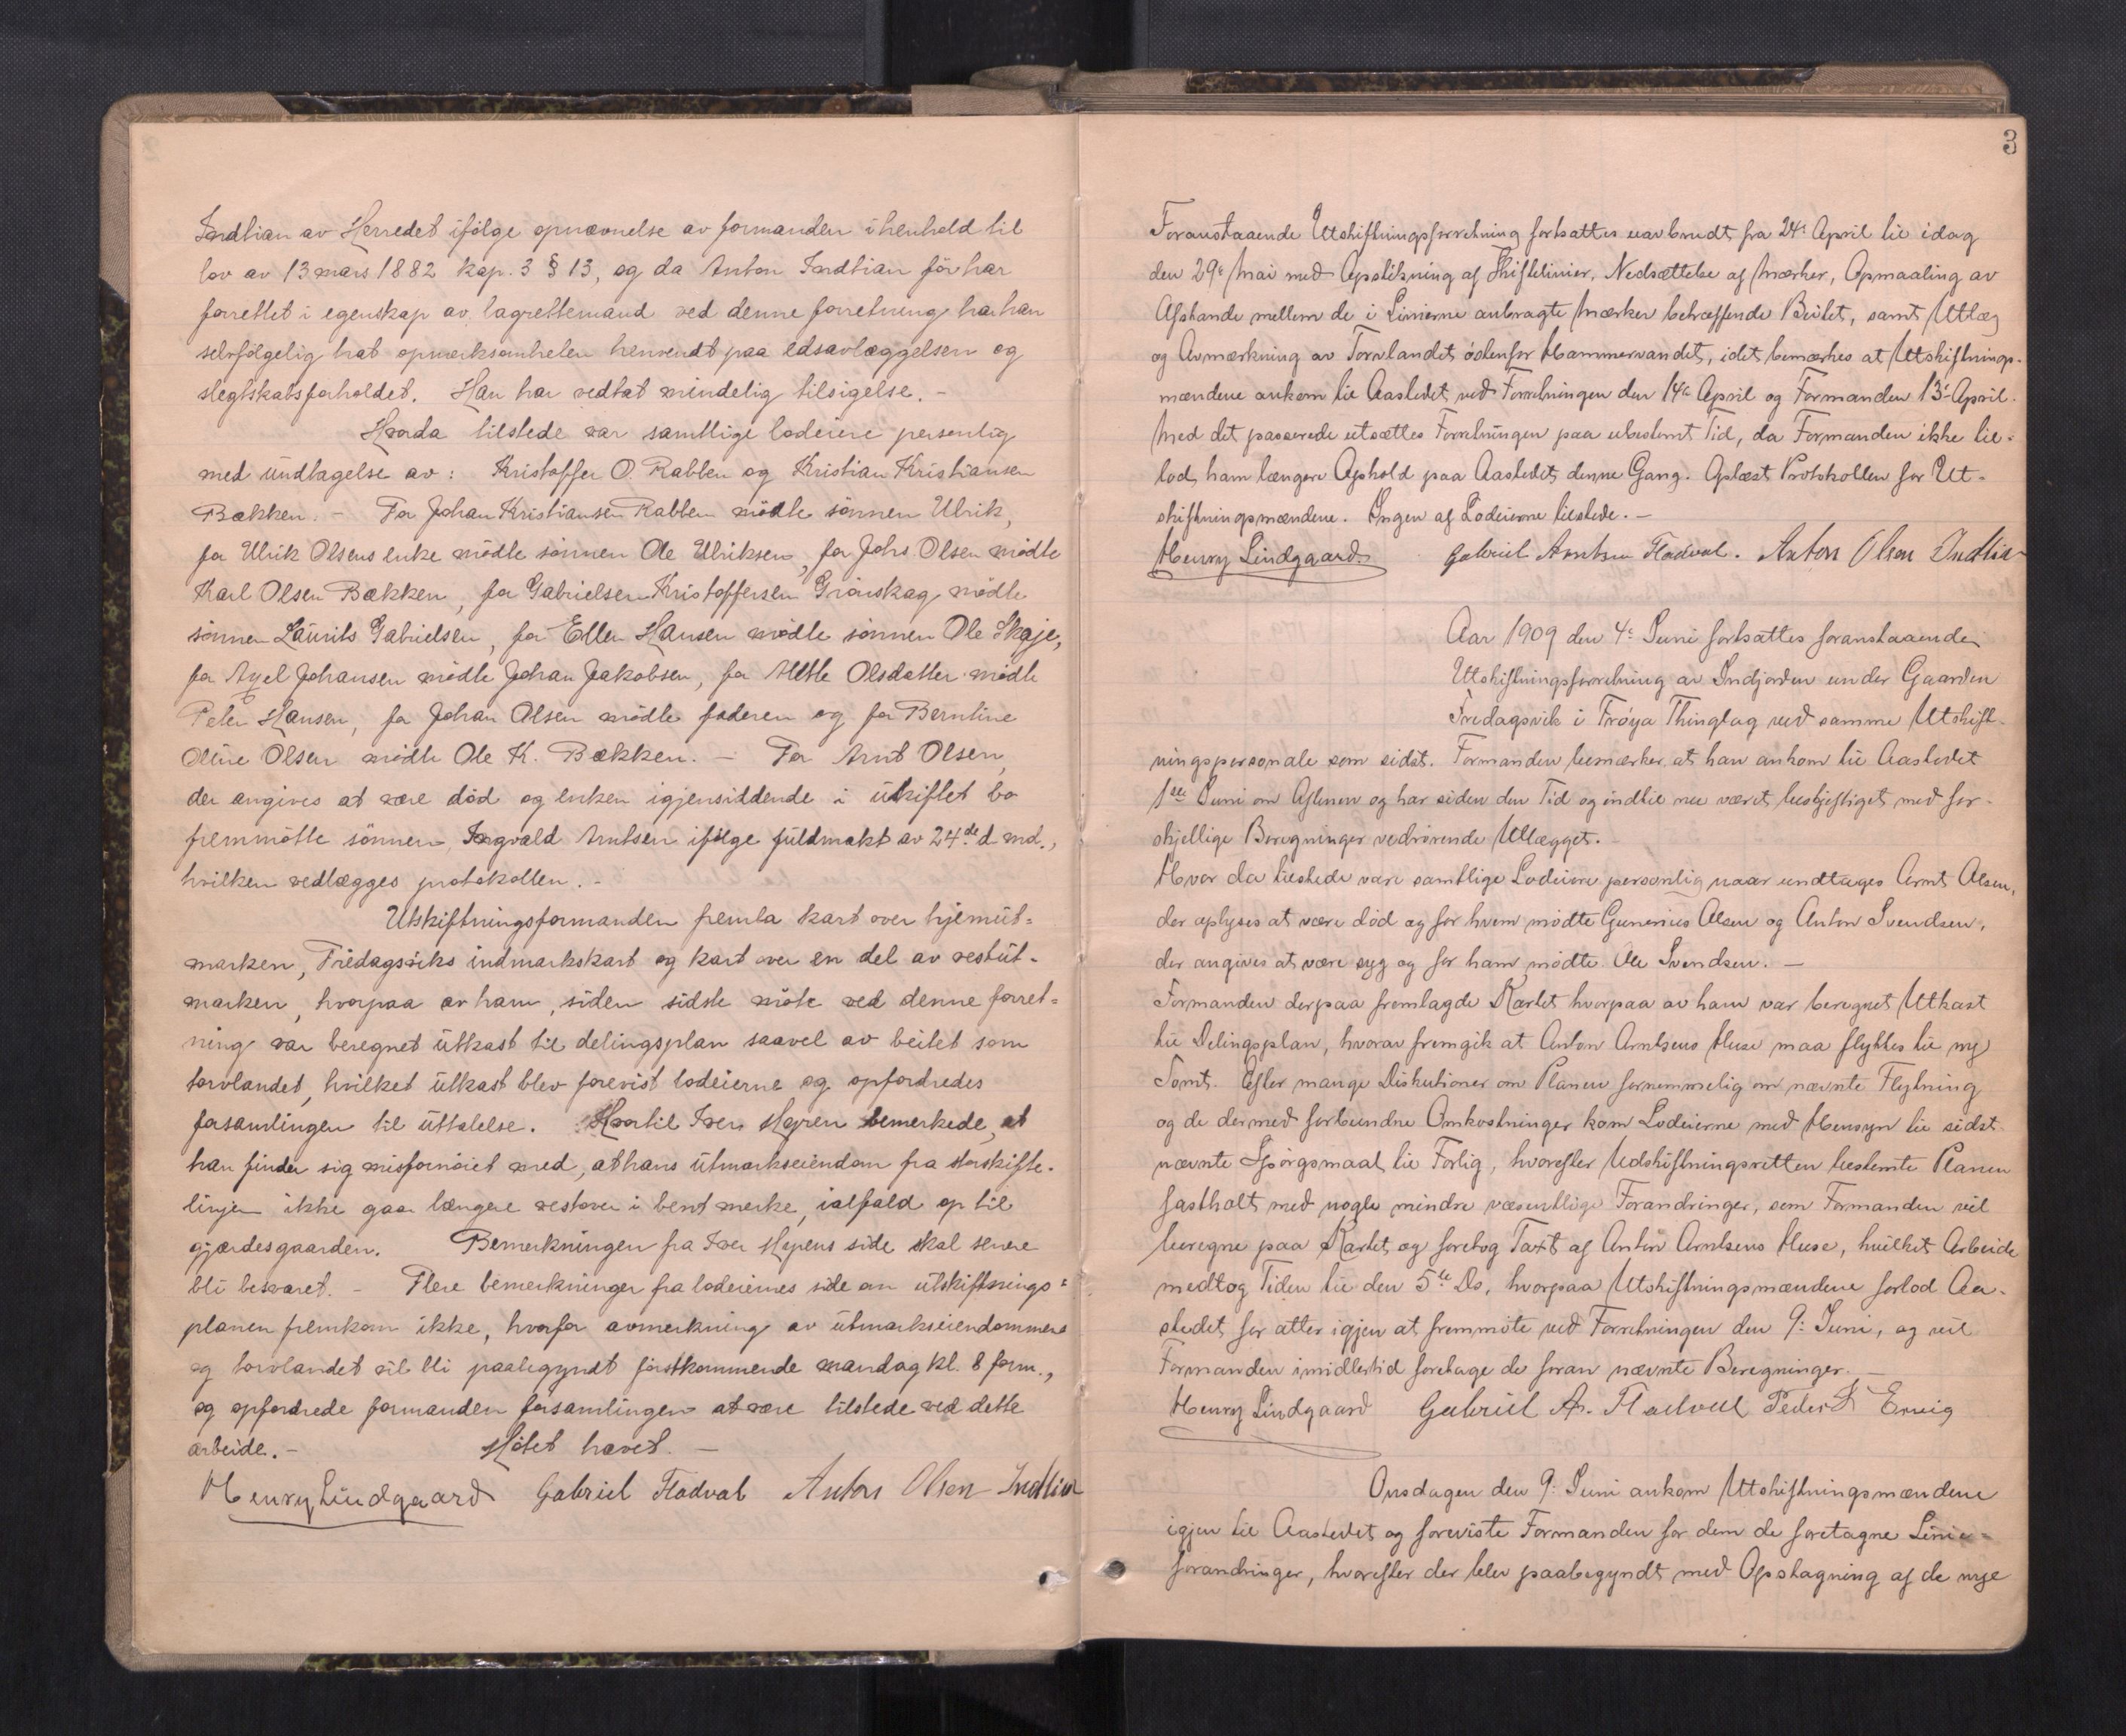 Indtian av Herredet ifölge opnævnelse av formanden i henhold til
lov av 13 mars 1882 kap. 3 § 13, og da Anton Indtian för har
forrettet i egenskap av lagrettemand ved denne forretning har han
selvfölgelig hat opmerksomheten henvendt paa edsavlæggelsen og
slegtskabsforholdet. Han har vedtat mindelig tilsigelse. -
Hvorda tilstede var samtlige lodeiere personlig
med undtagelse av: Kristoffer O. Rabben og Kristian Kristiansen
Bækken. - For Johan Kristiansen Rabben mödte sönnen Ulrik,
for Ulrik Olsens enke mödte sönnen Ole Ulriksen, for Johs. Olsen mödte
Karl Olsen Bækken, for Gabrielsen Kristoffersen Grönskag mödte
sönnen Laurits Gabrielsen, for Ellen Hansen mödte sönnen Ole Skaje,
for Axel Johansen mödte Johan Jakobsen, for Mette Olsdatter mödte
Peter Hansen, for Johan Olsen mödte faderen og for Berntine
Oline Olsen mödte Ole K. Bækken. - For Arnt Olsen,
der angives at være död og enken igjensiddende i uskiftet bo
fremmötte sönnen Ingvald Arntsen ifölge fuldmakt av 24de d. md.,
hvilken vedlægges protokollen. -
Utskiftningsformanden fremla kart over hjemut=
marken, Fredagsviks indmarkskart og kart over en del av restut-
marken, hvorpaa av ham, siden sidste möte ved denne forret=
ning var beregnet utkast til delingsplan saavel av beitet som
torvlandet, hvilket utkast blev forevist lodeierne og opfordredes
forsamlingen til uttalelse. Hvortil Iver Hepen bemerkede, at
han finder sig misfornöiet med, at hans utmarkseiendom fra storskifte-
linjen ikke gaar længere vestover i bent merke, ialfald op til
gjærdesgaarden. Bemerkningen fra Iver Hepens side skal senere
bli besvaret. - Flere bemerkninger fra lodeiernes side om utskiftnings=
planen fremkom ikke, hvorfor avmerkning av utmarkseiendommene
og torvlandet vil bli paabegyndt förstkommende mandag kl. 8 form.,
og opfordrede formanden forsamlingen at være tilstede ved dette
arbeide. - Mötet hævet. -
Henry Lindgaard Gabriel Flodval Anton Olsen Indtian
3
Foranstaaende Utskiftningsforretning fortsattes uavbrudt fra 24de April til idag
den 29de Mai med Opstikning af Skiftelinier, Nedsættelse af Mærker, Opmaaling av
Afstande mellem de i Linierne anbragte Mærker betræffende Beitet, samt Utlæg
og Avmærkning av Torvlandet östenfor Hammervandet, idet bemærkes at Utskiftnings-
mændene ankom til Aastedet ved Forretningen den 14de April og Formanden 13de April.
Med det passerede utsættes Forretningen paa ubestemt Tid, da Formanden ikke til-
lod ham længere Ophold paa Aastedet denne Gang. Oplæst Protokollen for Ut-
skiftningsmændene. Ingen af Lodeierne tilstede. -
Henry Lindgaard Gabriel Arntsen Flodval. Anton Olsen Indtian
Aar 1909 den 4de Juni fortsattes foranstaaende
Utskiftningsforretning av Indjorden under Gaarden
Fredagsvik i Fröya Thinglag ved samme Utskift-
ningspersonale som sidst. Formanden bemærker, at han ankom til Aastedet
1ste Juni om Aftenen og har siden den Tid og indtil nu været beskjeftiget med for-
skjellige Beregninger vedrörende Utlægget. -
Hvor da tilstede vare samtlige Lodeiere personlig naar undtages Arnt Olsen,
der oplyses at være död og for hvem mödte Gunerius Olsen og Anton Svendsen,
der angives at være syg og for ham mödte Ole Svendsen. -
Formanden derpaa fremlagde Kartet hvorpaa av ham var beregnet Utkast
til Delingsplan, hvorav fremgik at Anton Arntsens Huse maa flyttes til ny
Tomt. Efter mange Diskutioner om Planen fornemmelig om nævnte Flytning
og de dermed forbundne Omkostninger kom Lodeierne med Hensyn til sidst
nævnte Spörgsmaal til Forlig, hvorefter Udskiftningsretten bestemte Planen
fastholt med nogle mindre væsentlige Forandringer, som Formanden vil
beregne paa Kartet, og foretog Taxt af Anton Arntsens Huse, hvilket Arbeide
medtog Tiden til den 5te Ds, hvorpaa Utskiftningsmændene forlod Aa-
stedet for atter igjen at fremmöte ved Forretningen den 9: Juni, og vil
Formanden imidlertid foretage de foran nævnte Beregninger. -
Henry Lindgaard Gabriel A. Flodval Peder Ervig
Onsdagen den 9: Juni ankom Utskiftningsmændene
igjen til Aastedet og foreviste Formanden for dem de foretagne Linie=
forandringer, hvorefter der blev paabegyndt med Opstagning af de nye